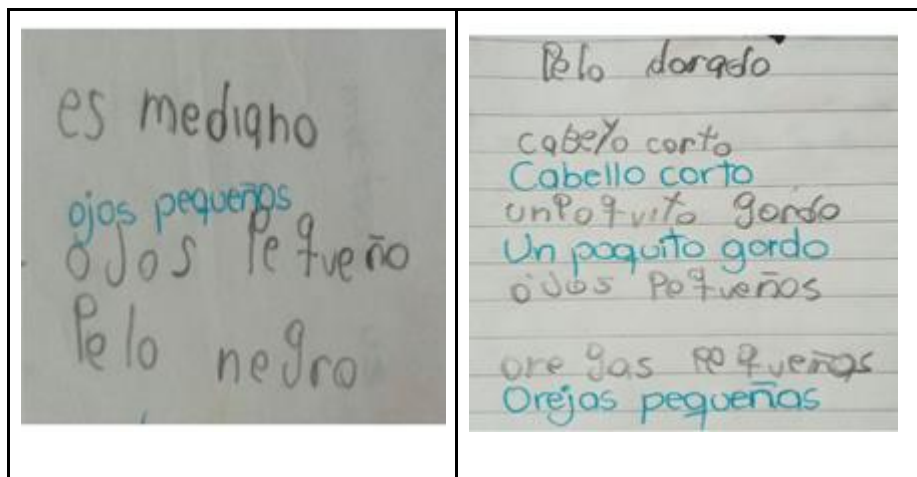 es mediano
ojos pequeños
ojos Pequeño
Pelo negro
Pelo dorado
cabeyo corto
Cabello corto
unPoquito gordo
Un poquito gordo
ojos Pequeños
oregas pequeñas
Orejas pequeñas